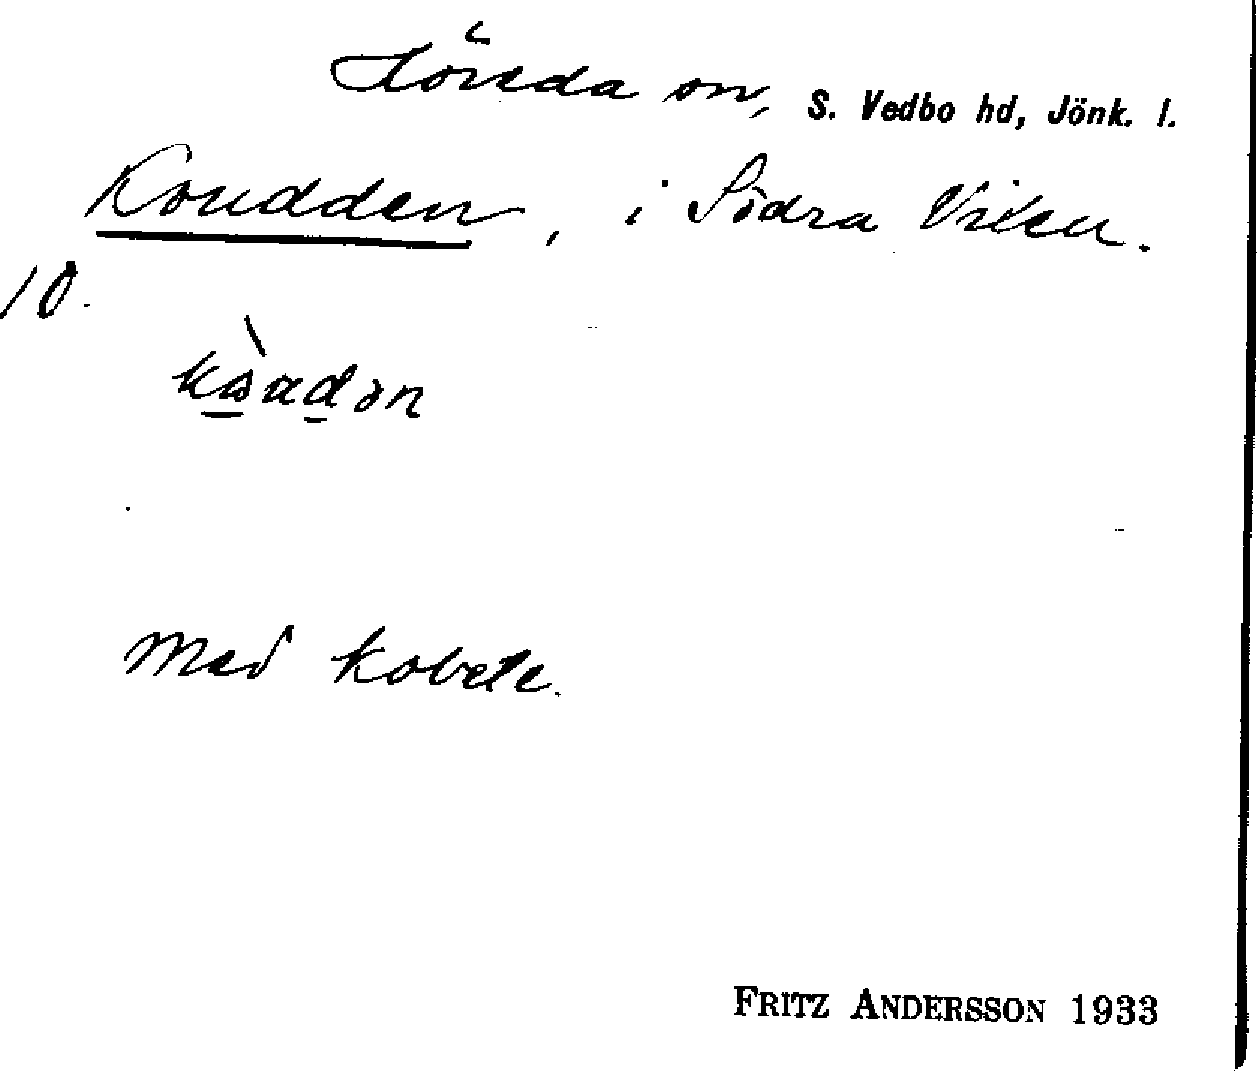 Höreda sn, S. Vedbo hd, Jönk. l.
Koudden, i Södra Viken.
10.
Med kobete.
FRITZ ANDERSSON 1933